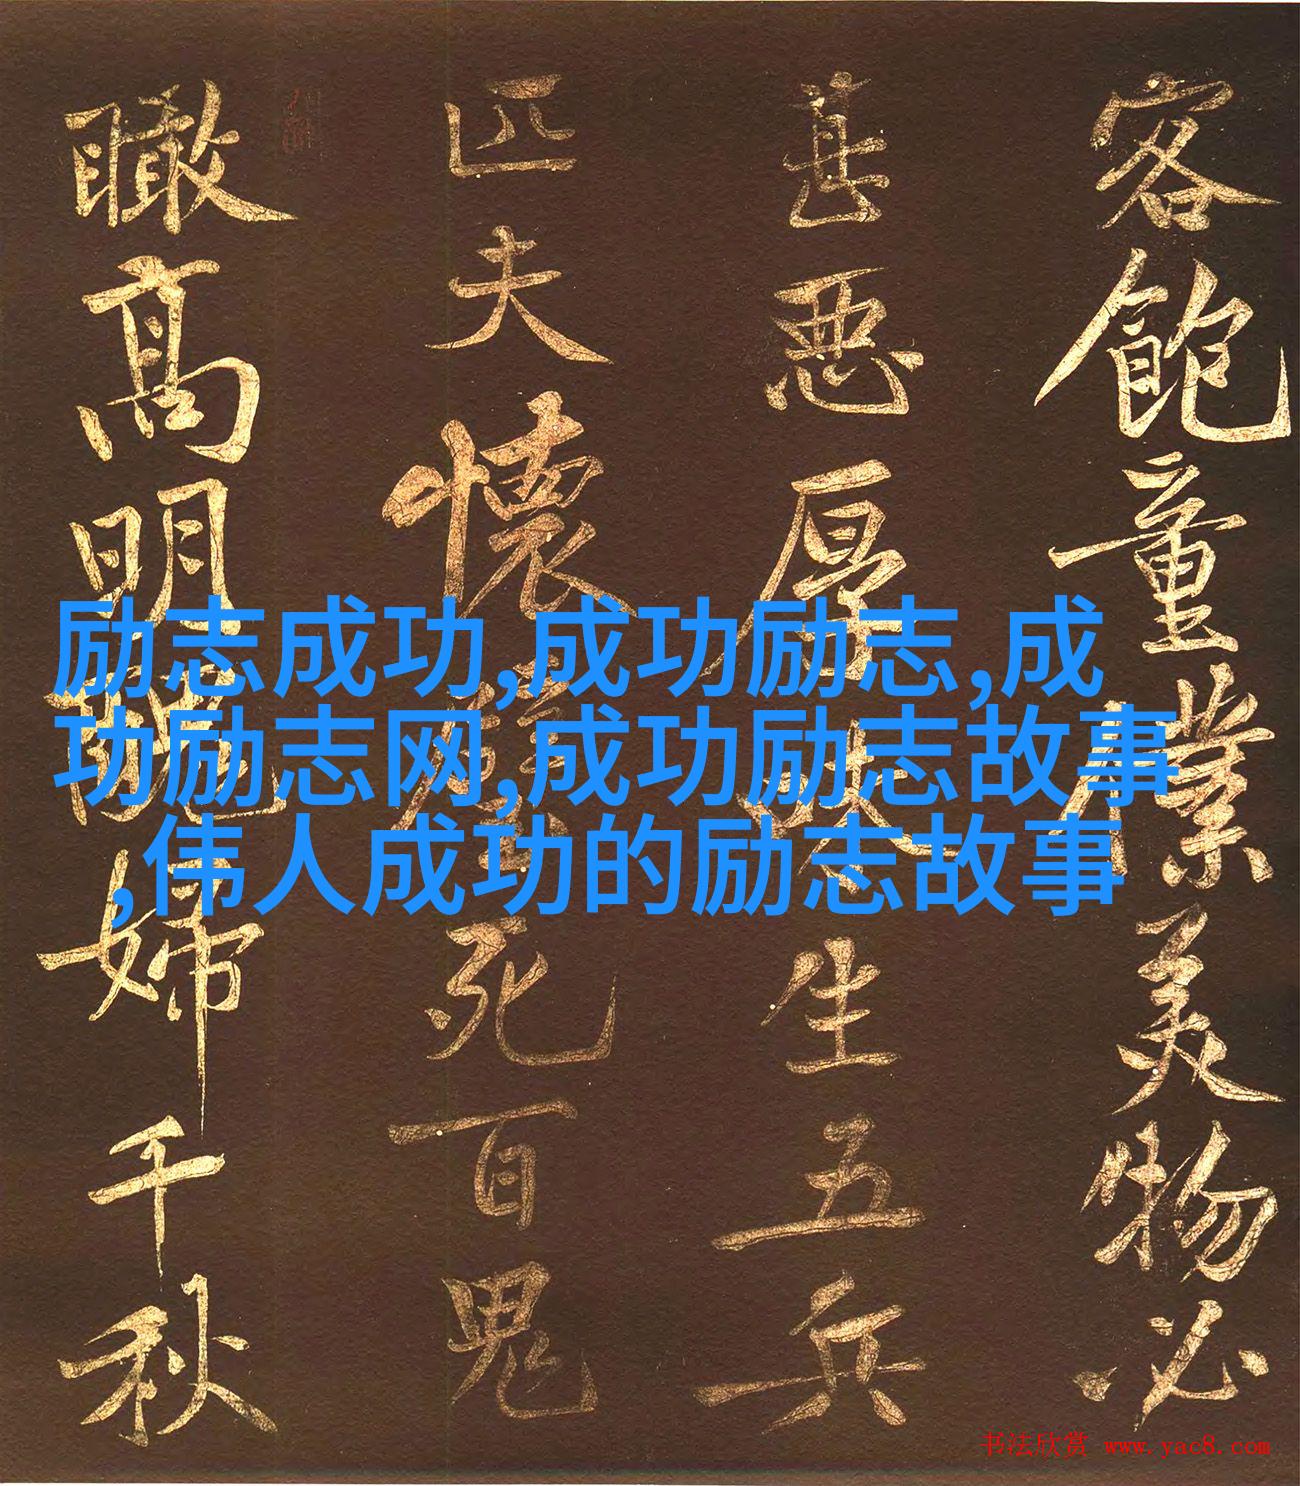 客飽童僕美物必
甚惡厚味生五兵
匹夫懷璧死百鬼
瞰高明醜婦千秋
励志成功,成功励志,成
功励志网,成功励志故事
,伟人成功的励志故事
书法欣赏 www.yac8.com